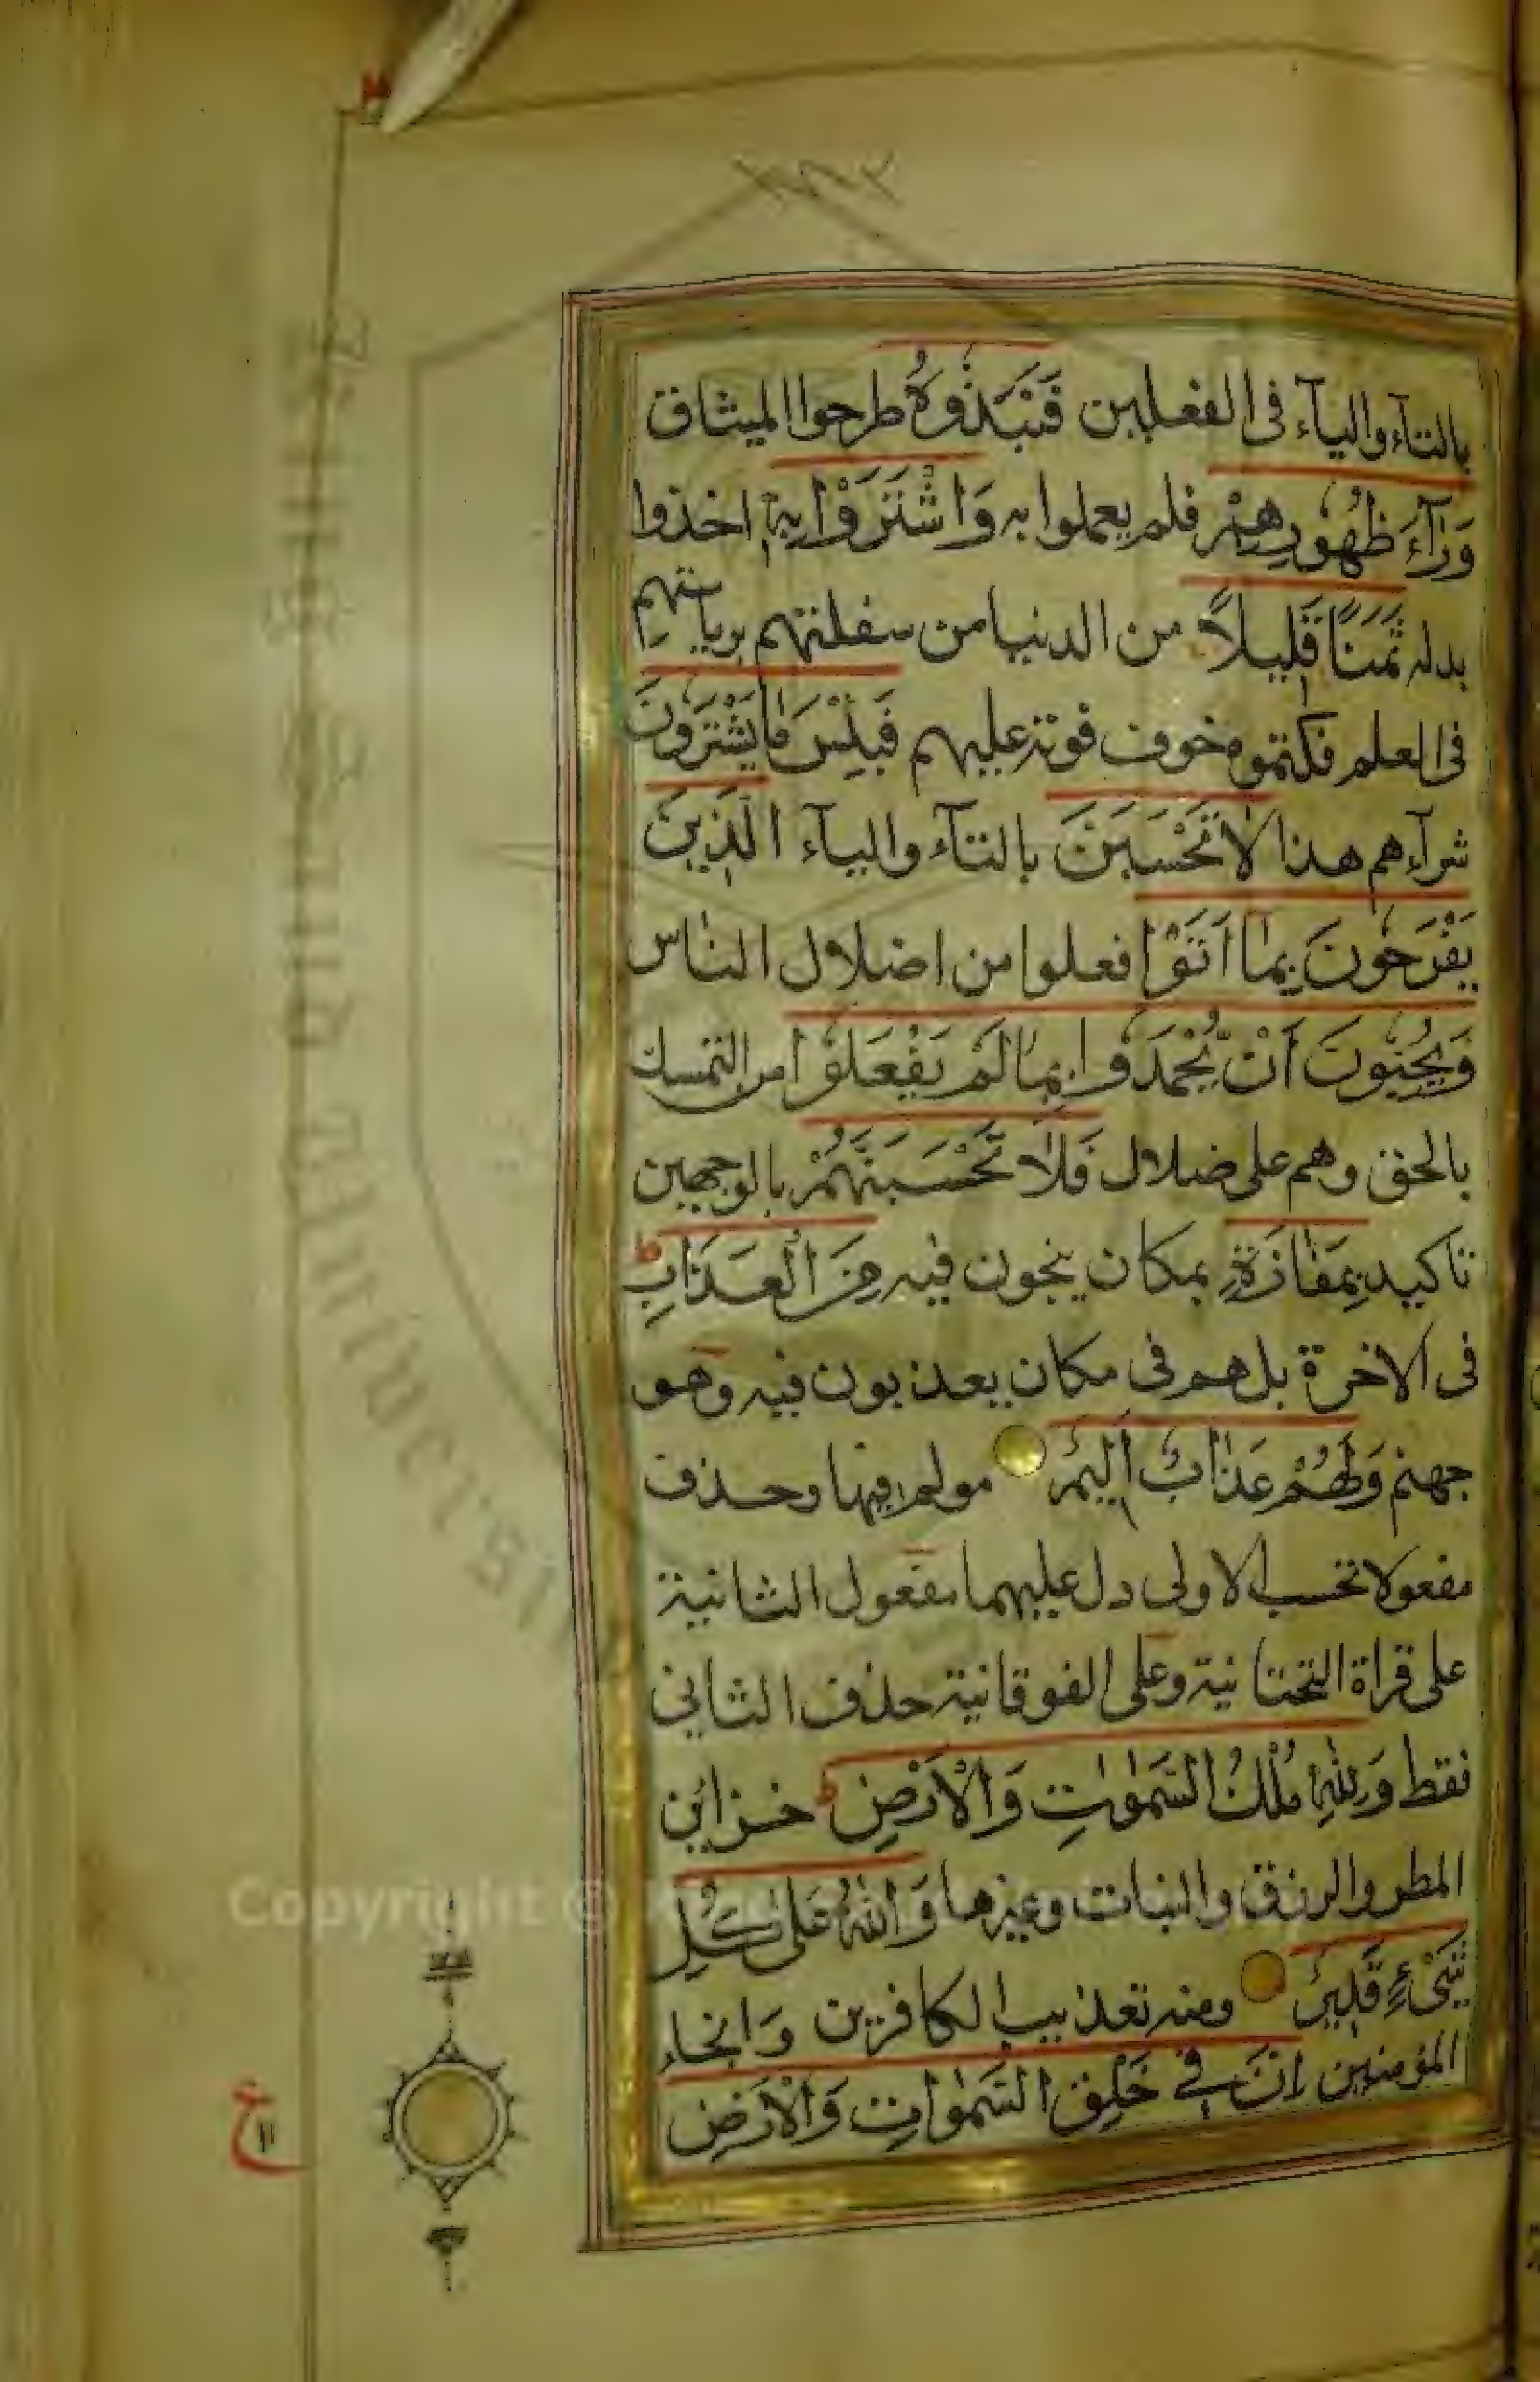 بالتآء واليآء فى الفعلين فَنَبَذُوهُ طرحوا الميثاق
وَرَآءَ ظُهُورِهِمْ فلم يعملوا به وَاشْتَرَوْا بِهٖ اخذوا
بدله ثَمَنًا قَلِيلًا من الدنيا من سفلتهم برياستهم
فى العلم فكتموه خوف فوته عليهم فَبِئْسَ مَا يَشْتَرُونَ
شرآءهم هذا لَا تَحْسَبَنَّ بالتآء واليآء الَّذِينَ
يَفْرَحُونَ بِمَا اَتَوْا فعلوا من اضلال الناس
وَيُحِبُّونَ اَنْ يُّحْمَدُوا بِمَا لَمْ يَفْعَلُوْا من التمسك
بالحق وهم على ضلال فَلَا تَحْسَبَنَّهُمْ بالوجهين
تاكيد بِمَفَازَةٍ بمكان ينجون فيه مِنَ الْعَذَابِ ط
فى الاخرة بل هم فى مكان يعذبون فيه وهو
جهنم وَلَهُمْ عَذَابٌ اَلِيمٌ مولم فيها وحذف
مفعولا تحسب الاولى دل عليهما مفعول الثانية
على قراة التحتانية وعلى الفوقانية حذف الثانى
فقط وَلِلّٰهِ مُلْكُ السَّمٰوٰتِ وَالْاَرْضِ ط خزائن
المطر والرزق والنبات وغيرها وَاللّٰهُ عَلٰى كُلِّ
شَىْءٍ قَدِيرٌ ومنه تعذيب الكافرين وَانجاء
المؤمنين اِنَّ فِى خَلْقِ السَّمٰوَاتِ وَالْاَرْضِ
ع
١١
Copyright ©